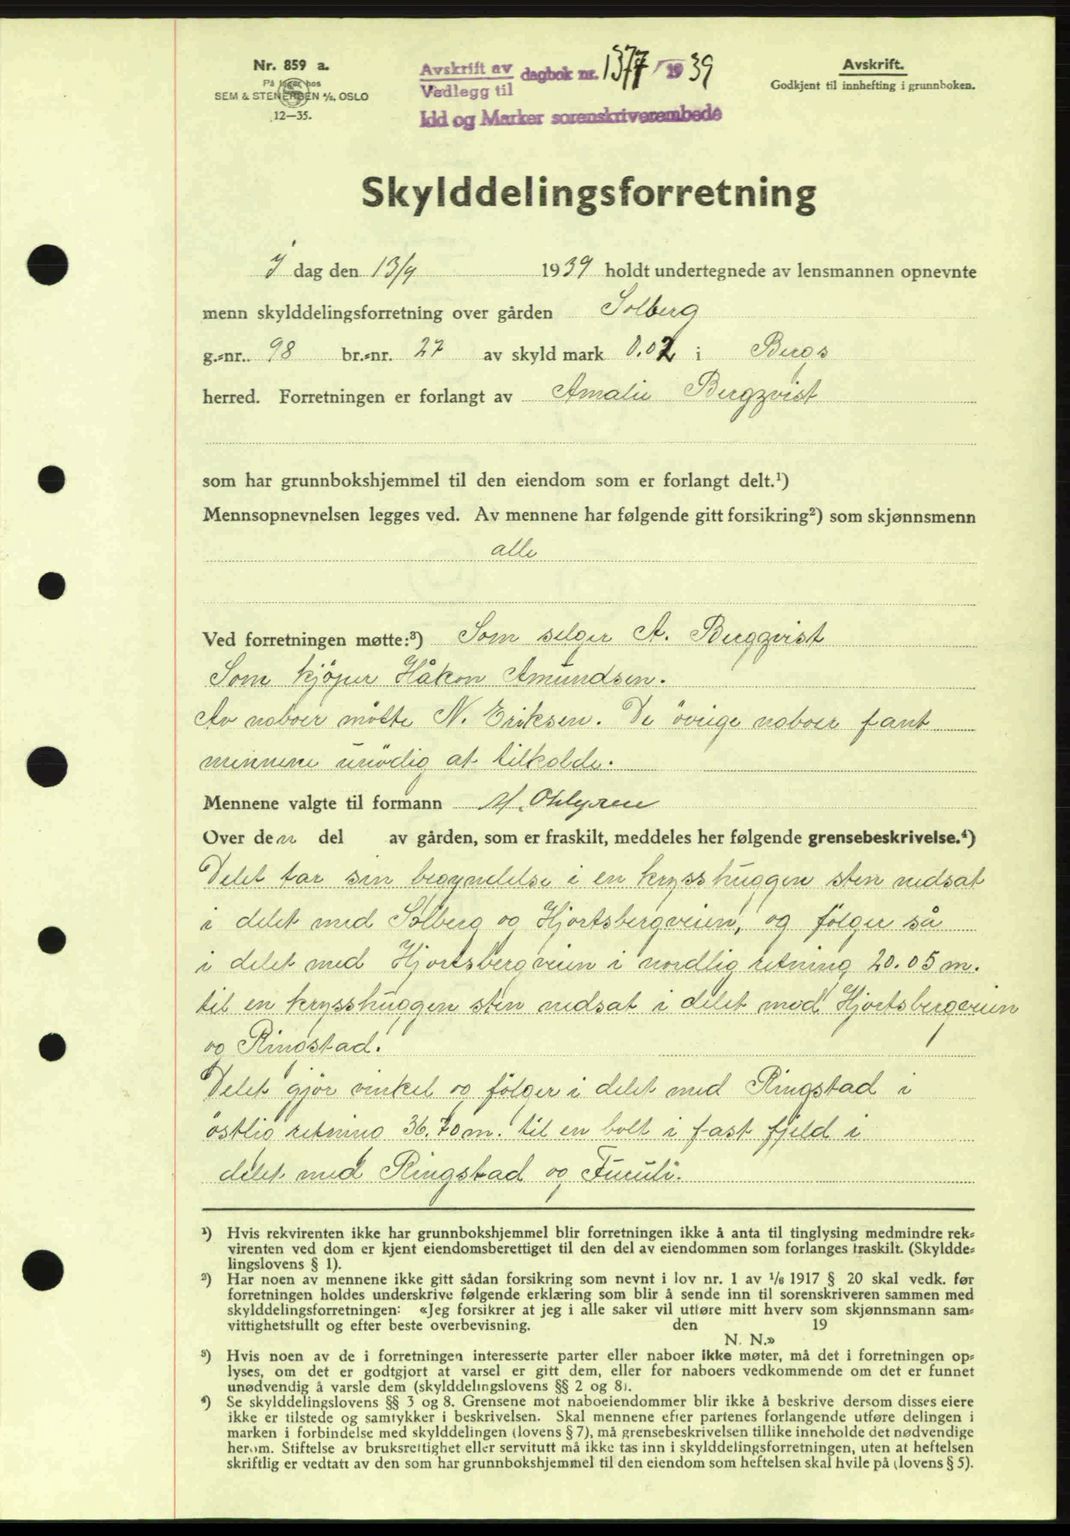 Nr. 859 a.
På lager hos
SEM & STENERSEN A/S, OSLO
12—35.
Avskrift av
Vedlegg til
dagbok nr. 1377 / 1939
Idd og Marker sorenskriverembede
Avskrift.
Godkjent til innhefting i grunnboken.
Skylddelingsforretning
I dag den 13/9 1939 holdt undertegnede av lensmannen opnevnte
menn skylddelingsforretning over gården Solberg
g.-nr.. 98 br.-nr. 27 av skyld mark 0.02 i Bergs
herred. Forretningen er forlangt av Amalie Bergqvist
som har grunnbokshjemmel til den eiendom som er forlangt delt.¹)
Mennsopnevnelsen legges ved. Av mennene har følgende gitt forsikring²) som skjønnsmenn
alle
Ved forretningen møtte:³) Som selger A. Bergqvist
Som kjöper Håkon Amundsen.
Av naboer møtte N. Eriksen. De övrige naboer fant
mennene unödig at tilkalde.
Mennene valgte til formann M.
Over den del av gården, som er fraskilt, meddeles her følgende grensebeskrivelse.⁴)
Delet tar sin begynelse i en krysshuggen sten nedsat
i delet med Solberg og Hjortsbergveien, og fölger så
i delet med Hjortsbergveien i nordlig retning 20.05 m.
til en krysshuggen sten nedsat i delet med Hjortsbergveien
og Ringstad.
Delet gjör vinkel og fölger i delet med Ringstad i
östlig retning 36.70 m. til en bolt i fast fjeld i
delet med Ringstad og Furuli.
¹) Hvis rekvirenten ikke har grunnbokshjemmel blir forretningen ikke å anta til tinglysing medmindre rek-
virenten ved dom er kjent eiendomsberettiget til den del av eiendommen som forlanges fraskilt. (Skyldde-
lingslovens § 1).
²) Har noen av mennene ikke gitt sådan forsikring som nevnt i lov nr. 1 av 1/6 1917 § 20 skal vedk. før
forretningen holdes underskrive følgende erklæring som blir å sende inn til sorenskriveren sammen med
skylddelingsforretningen: «Jeg forsikrer at jeg i alle saker vil utføre mitt hverv som skjønnsmann sam-
vittighetsfullt og efter beste overbevisning. den 19
N. N.»
³) Hvis noen av de i forretningen interesserte parter eller naboer ikke møter, må det i forretningen op-
lyses, om det er godtgjort at varsel er gitt dem, eller for naboers vedkommende om det er funnet
unødvendig å varsle dem (skylddelingslovens §§ 2 og 8).
⁴) Se skylddelingslovens §§ 3 og 8. Grensene mot naboeiendommer blir ikke å beskrive dersom disses eiere
ikke er tilstede og samtykker i beskrivelsen. Skal mennene efter partenes forlangende utføre delingen i
marken i forbindelse med skylddelingen (lovens § 7), må grensebeskrivelsen tillike inneholde det nødvendige
herom. Stiftelse av bruksrettighet eller servitutt må ikke tas inn i skylddelingsforretningen, uten at heftelsen
skriftlig er vedtatt av den som har grunnbokshjemmel til den eiendom som heftelsen skal hvile på (lovens § 5).